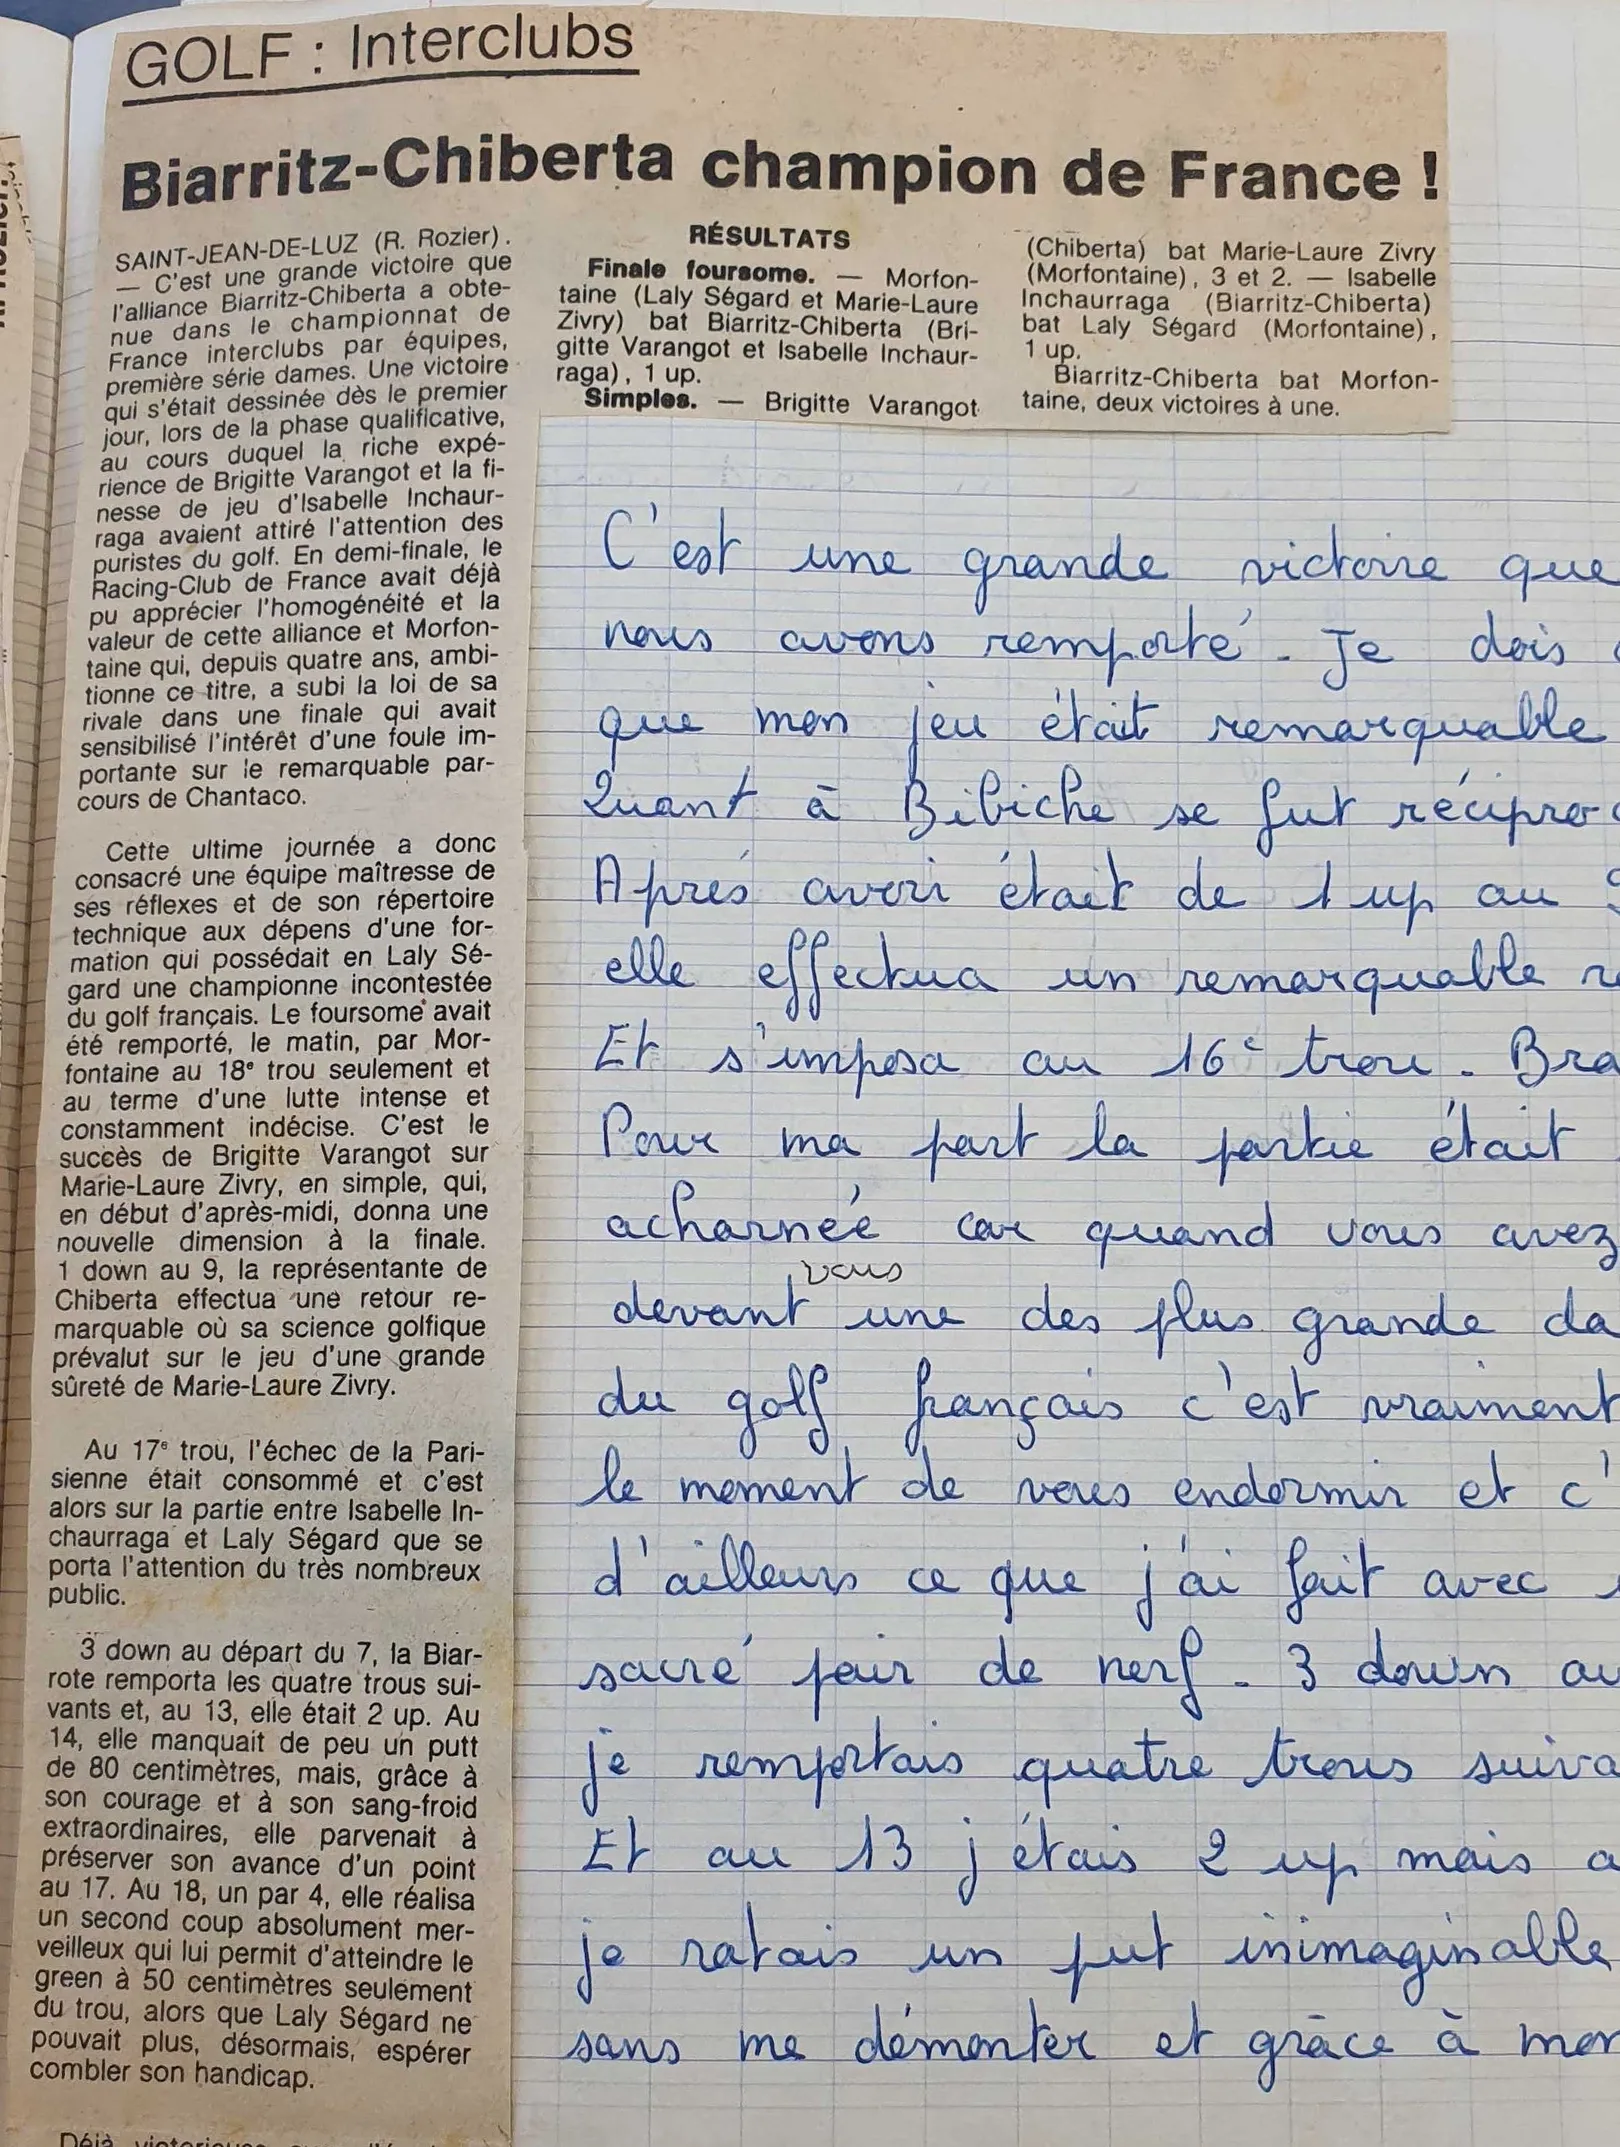 GOLF : Interclubs
Biarritz-Chiberta champion de France !
SAINT-JEAN-DE-LUZ (R. Rozier).
— C'est une grande victoire que
l'alliance Biarritz-Chiberta a obte-
nue dans le championnat de
France interclubs par équipes,
première série dames. Une victoire
qui s'était dessinée dès le premier
jour, lors de la phase qualificative,
au cours duquel la riche expé-
rience de Brigitte Varangot et la fi-
nesse de jeu d'Isabelle Inchaur-
raga avaient attiré l'attention des
puristes du golf. En demi-finale, le
Racing-Club de France avait déjà
pu apprécier l'homogénéité et la
valeur de cette alliance et Morfon-
taine qui, depuis quatre ans, ambi-
tionne ce titre, a subi la loi de sa
rivale dans une finale qui avait
sensibilisé l'intérêt d'une foule im-
portante sur le remarquable par-
cours de Chantaco.
Cette ultime journée a donc
consacré une équipe maîtresse de
ses réflexes et de son répertoire
technique aux dépens d'une for-
mation qui possédait en Laly Sé-
gard une championne incontestée
du golf français. Le foursome avait
été remporté, le matin, par Mor-
fontaine au 18e trou seulement et
au terme d'une lutte intense et
constamment indécise. C'est le
succès de Brigitte Varangot sur
Marie-Laure Zivry, en simple, qui,
en début d'après-midi, donna une
nouvelle dimension à la finale.
1 down au 9, la représentante de
Chiberta effectua une retour re-
marquable où sa science golfique
prévalut sur le jeu d'une grande
sûreté de Marie-Laure Zivry.
Au 17e trou, l'échec de la Pari-
sienne était consommé et c'est
alors sur la partie entre Isabelle In-
chaurraga et Laly Ségard que se
porta l'attention du très nombreux
public.
3 down au départ du 7, la Biar-
rote remporta les quatre trous sui-
vants et, au 13, elle était 2 up. Au
14, elle manquait de peu un putt
de 80 centimètres, mais, grâce à
son courage et à son sang-froid
extraordinaires, elle parvenait à
préserver son avance d'un point
au 17. Au 18, un par 4, elle réalisa
un second coup absolument mer-
veilleux qui lui permit d'atteindre le
green à 50 centimètres seulement
du trou, alors que Laly Ségard ne
pouvait plus, désormais, espérer
combler son handicap.
Déjà
RÉSULTATS
Finale foursome. — Morfon-
taine (Laly Ségard et Marie-Laure
Zivry) bat Biarritz-Chiberta (Bri-
gitte Varangot et Isabelle Inchaur-
raga), 1 up.
Simples. — Brigitte Varangot
(Chiberta) bat Marie-Laure Zivry
(Morfontaine), 3 et 2. — Isabelle
Inchaurraga (Biarritz-Chiberta)
bat Laly Ségard (Morfontaine),
1 up.
Biarritz-Chiberta bat Morfon-
taine, deux victoires à une.
C'est une grande victoire que
nous avons remporté. Je dois
que mon jeu était remarquable
Quant à Bibiche se fut récipro
Aprés avoir était de 1 up au
elle effectua un remarquable
Et s'imposa au 16e trou. Bra
Pour ma part la partie était
acharnée car quand vous avez
vous
devant une des plus grande da
du golf français c'est vraiment
le moment de vous endormir et c'
d'ailleurs ce que j'ai fait avec
sacré pair de nerf. 3 down au
je remportais quatre trous suiva
Et au 13 j étais 2 up mais a
je ratais un put inimaginable
sans me démonter et grâce à mon